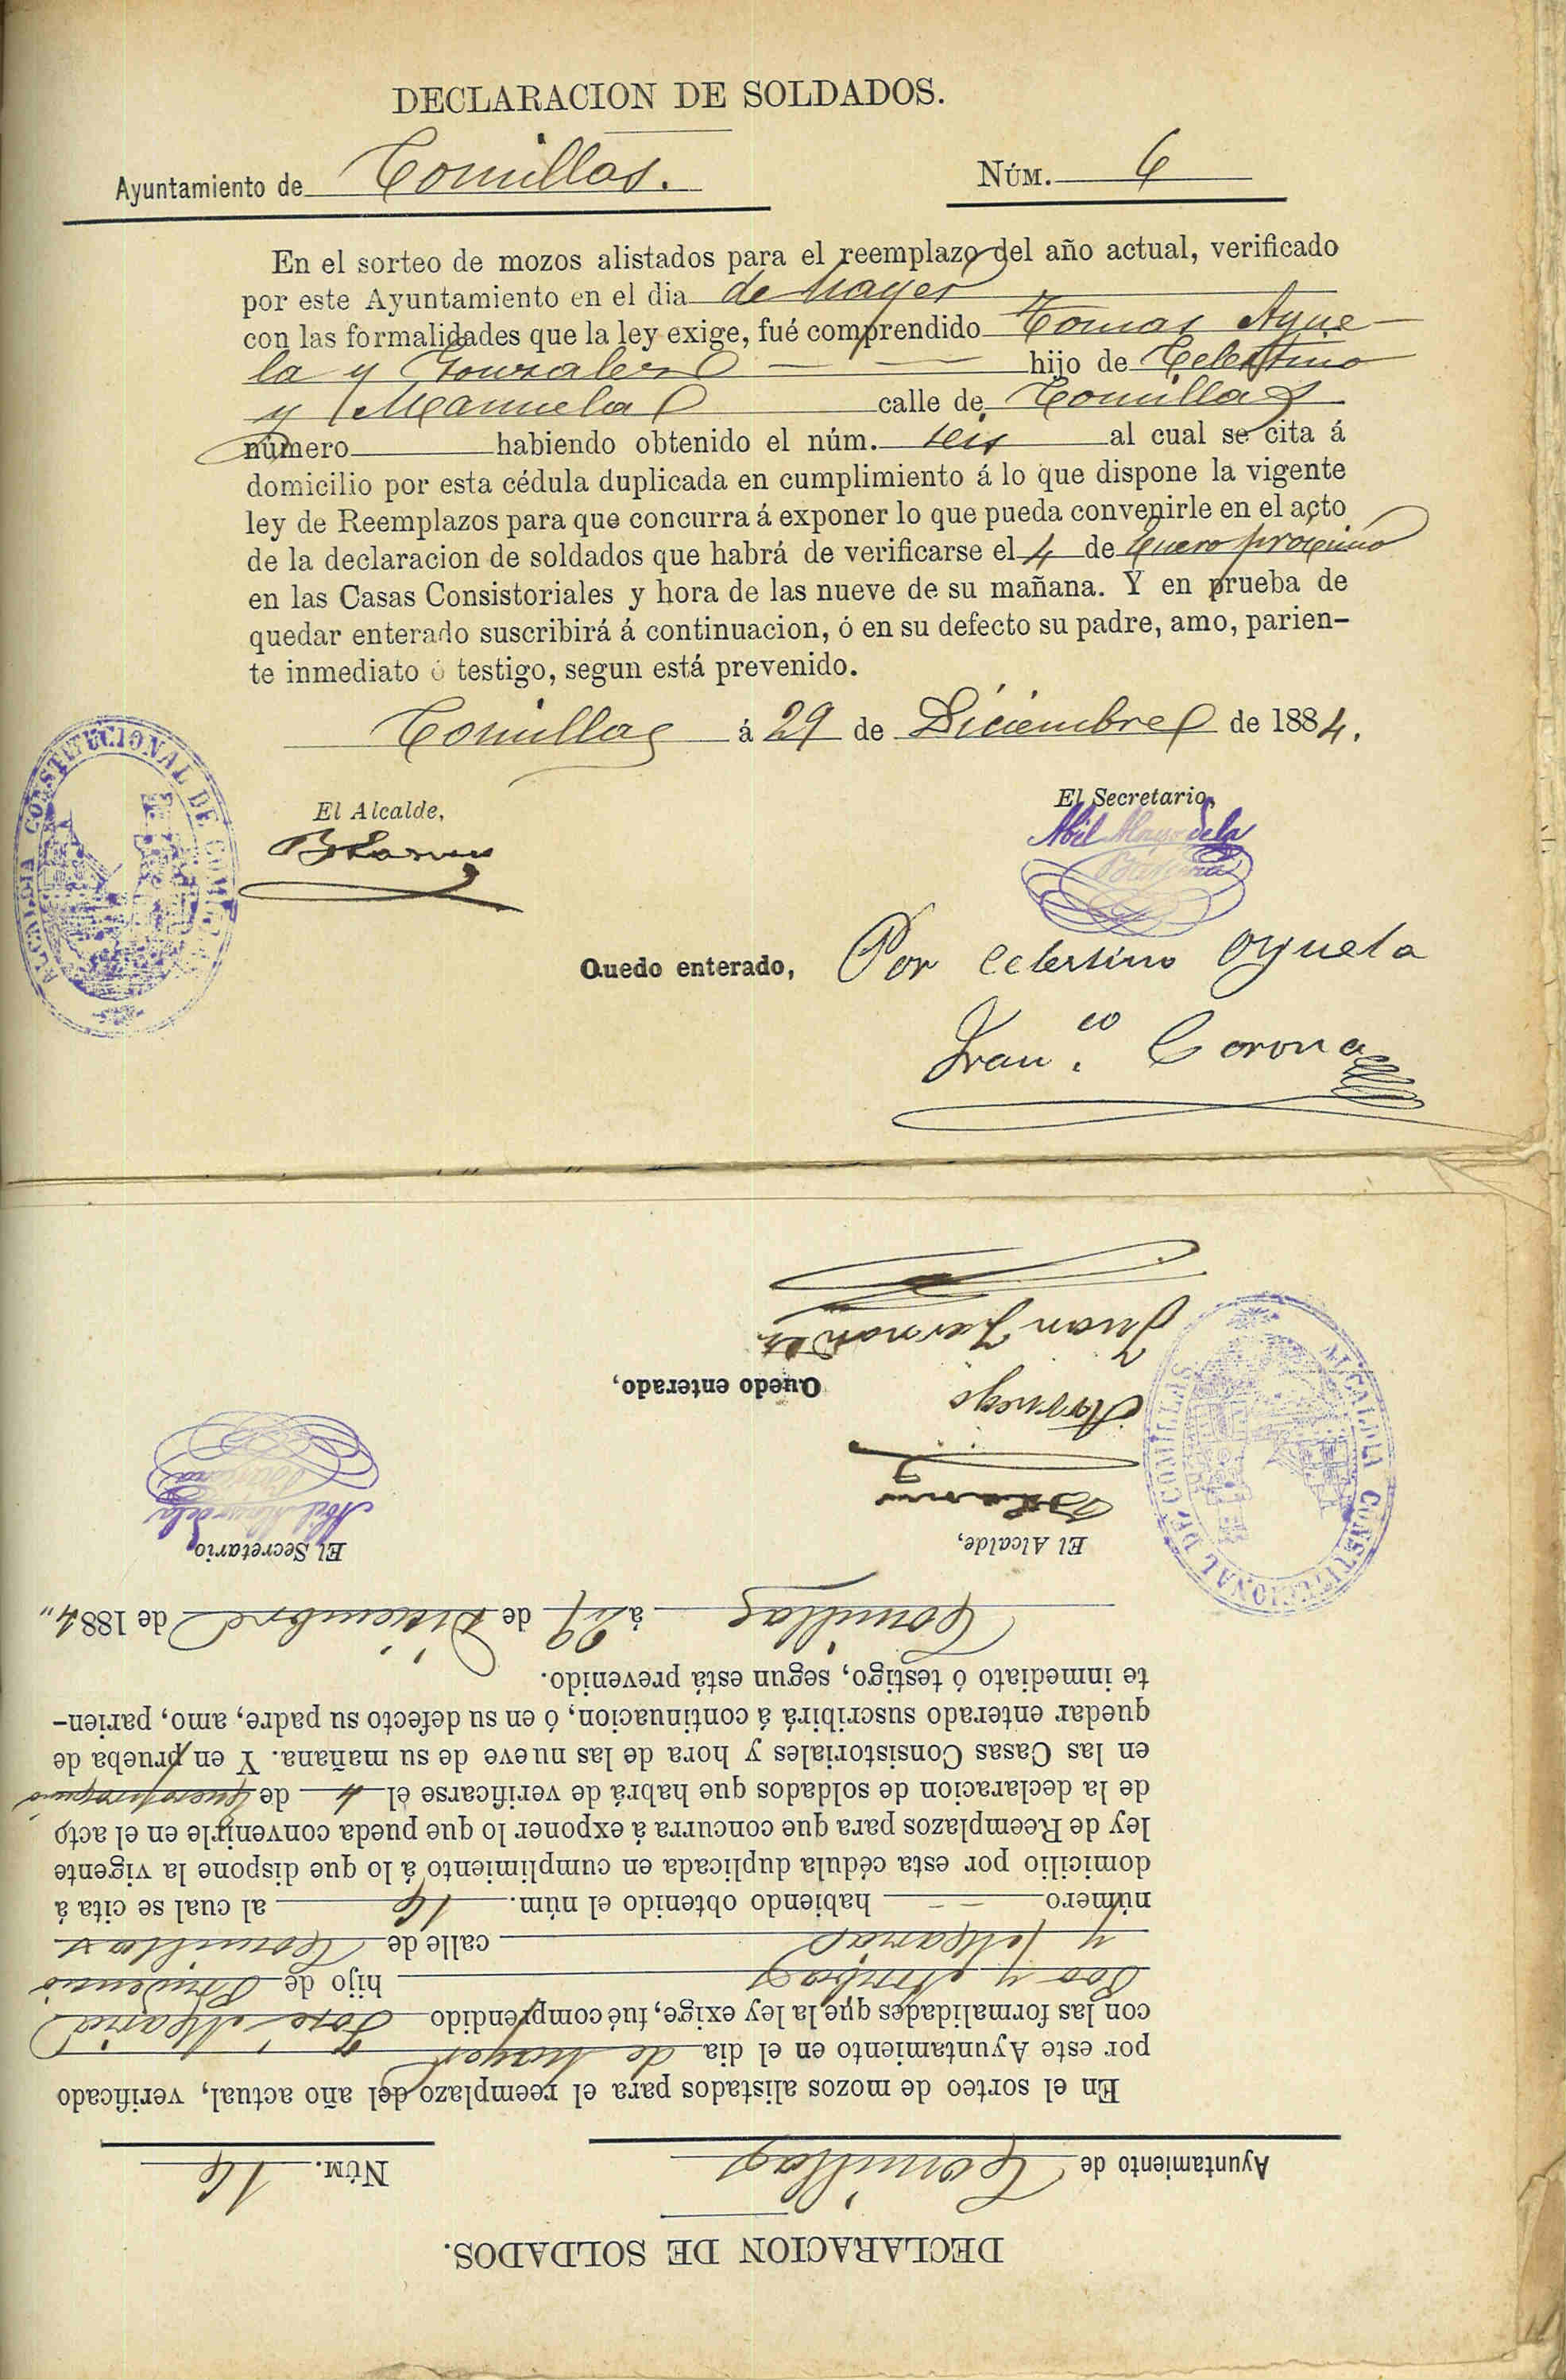 DECLARACION DE SOLDADOS.
Ayuntamiento de Comillas. NÚM. 6
En el sorteo de mozos alistados para el reemplazo del año actual, verificado
por este Ayuntamiento en el dia de hayer
con las formalidades que la ley exige, fué comprendido Tomas Ayue-
la y Gonzalez hijo de Celestino
y Manuela calle de Comillas
número habiendo obtenido el núm. seis al cual se cita á
domicilio por esta cédula duplicada en cumplimiento á lo que dispone la vigente
ley de Reemplazos para que concurra á exponer lo que pueda convenirle en el acto
de la declaracion de soldados que habrá de verificarse el 4 de Enero proximo
en las Casas Consistoriales y hora de las nueve de su mañana. Y en prueba de
quedar enterado suscribirá á continuacion, ó en su defecto su padre, amo, parien-
te inmediato ó testigo, segun está prevenido.
Comillas á 29 de Diciembre de 1884.
ALCALDIA CONSTITUCIONAL DE COMILLAS
El Alcalde,
El Secretario,
Abil
Quedo enterado, Por Celestino Oyuela
Fran.co Corona
DECLARACION DE SOLDADOS.
Ayuntamiento de Comillas NÚM. 16
En el sorteo de mozos alistados para el reemplazo del año actual, verificado
por este Ayuntamiento en el dia de hayer
con las formalidades que la ley exige, fué comprendido José Maria
hijo de Prudencio
y Maria calle de Comillas
número habiendo obtenido el núm. 16 al cual se cita á
domicilio por esta cédula duplicada en cumplimiento á lo que dispone la vigente
ley de Reemplazos para que concurra á exponer lo que pueda convenirle en el acto
de la declaracion de soldados que habrá de verificarse el 4 de Enero proximo
en las Casas Consistoriales y hora de las nueve de su mañana. Y en prueba de
quedar enterado suscribirá á continuacion, ó en su defecto su padre, amo, parien-
te inmediato ó testigo, segun está prevenido.
Comillas á 29 de Diciembre de 1884
El Alcalde,
El Secretario
ALCALDIA CONSTITUCIONAL DE COMILLAS
Quedo enterado,
A ruego
Juan Fernandez